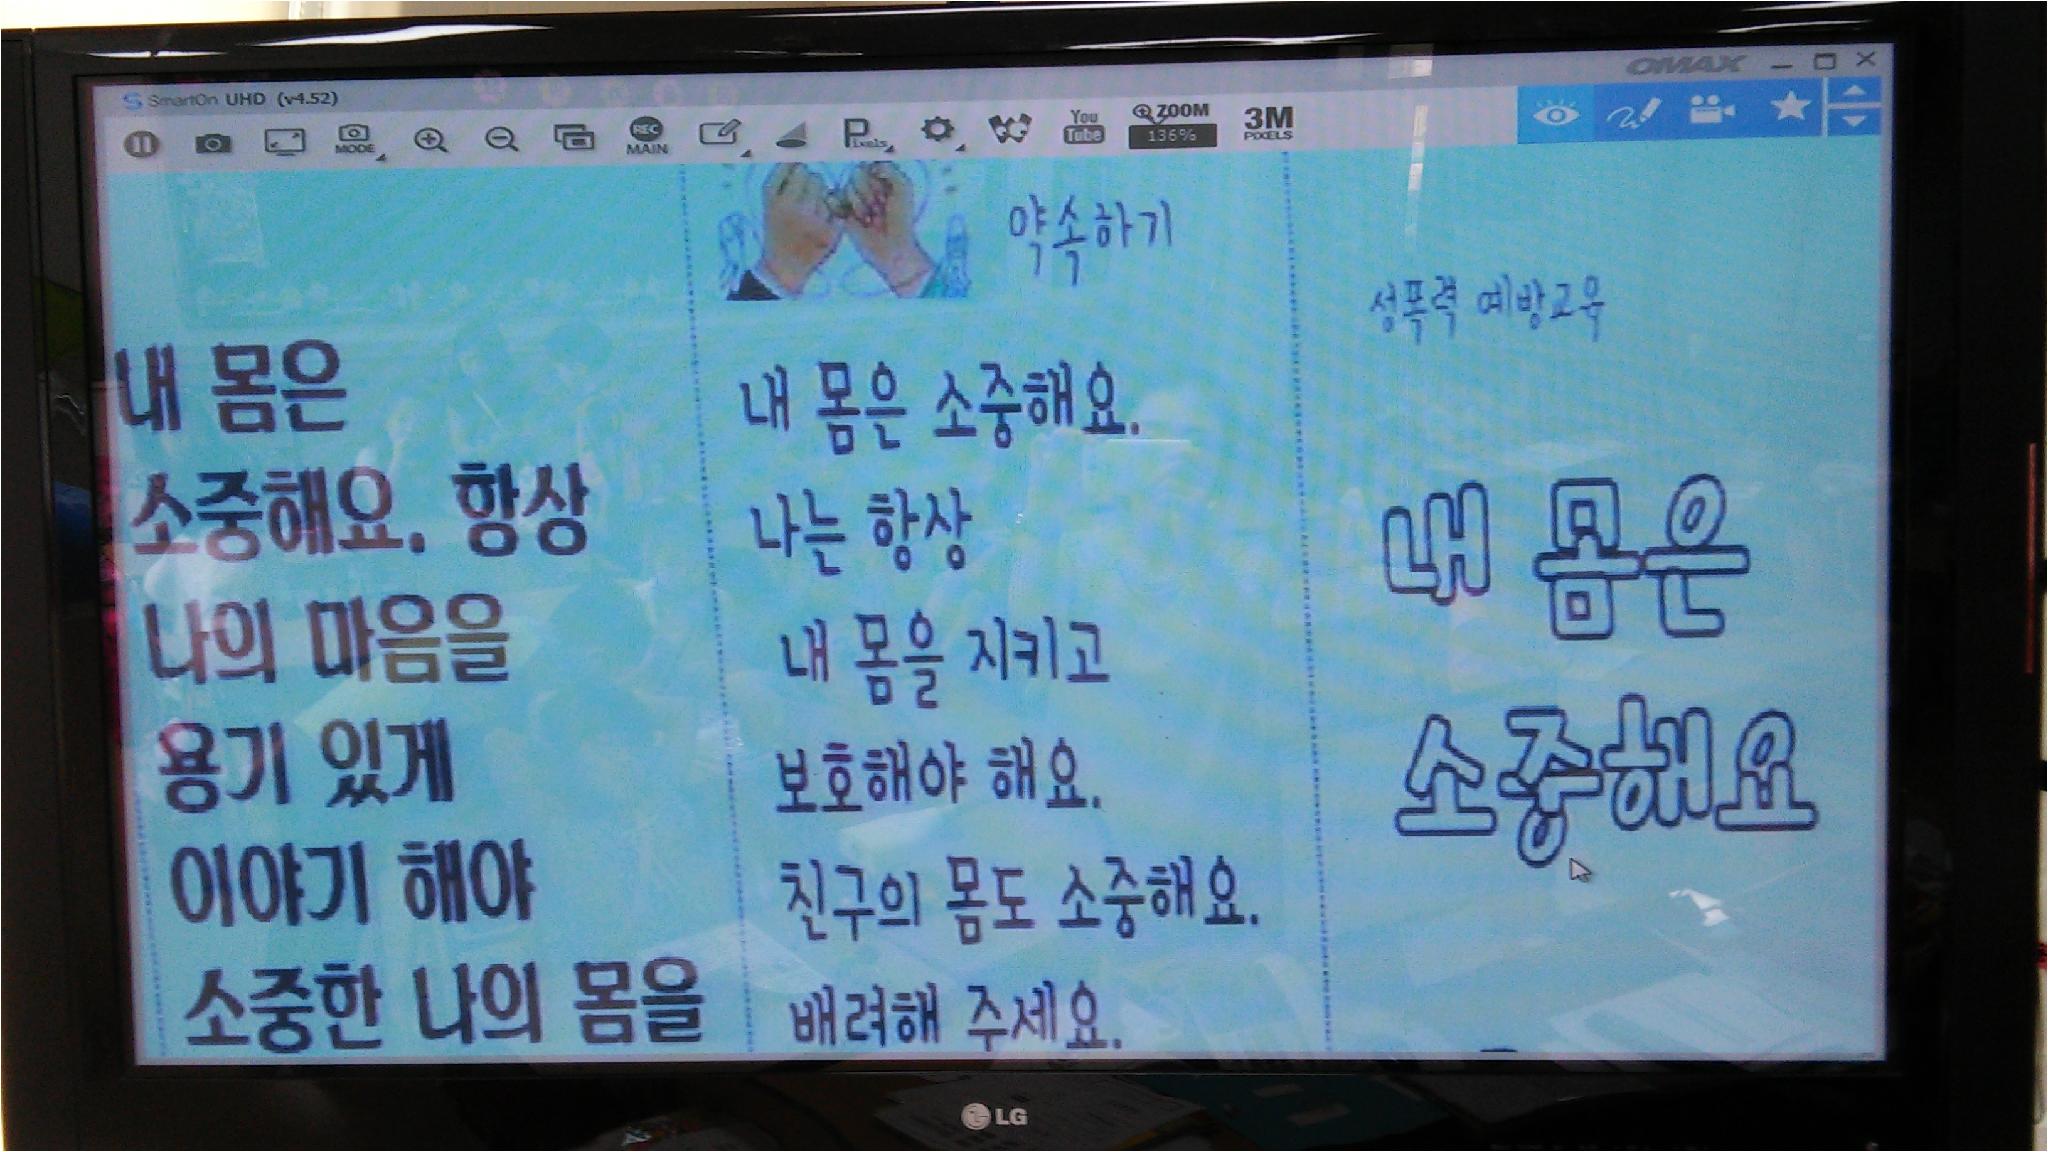 OMAX
SmartOn UHD (v4.52)
MODE
REC
MAIN
Pixels
You
Tube
ZOOM
136%
3M
PIXELS
내 몸은
소중해요. 항상
나의 마음을
용기 있게
이야기 해야
소중한 나의 몸을
약속하기
내 몸은 소중해요.
나는 항상
내 몸을 지키고
보호해야 해요.
친구의 몸도 소중해요.
배려해 주세요.
성폭력 예방교육
내 몸은
소중해요
LG